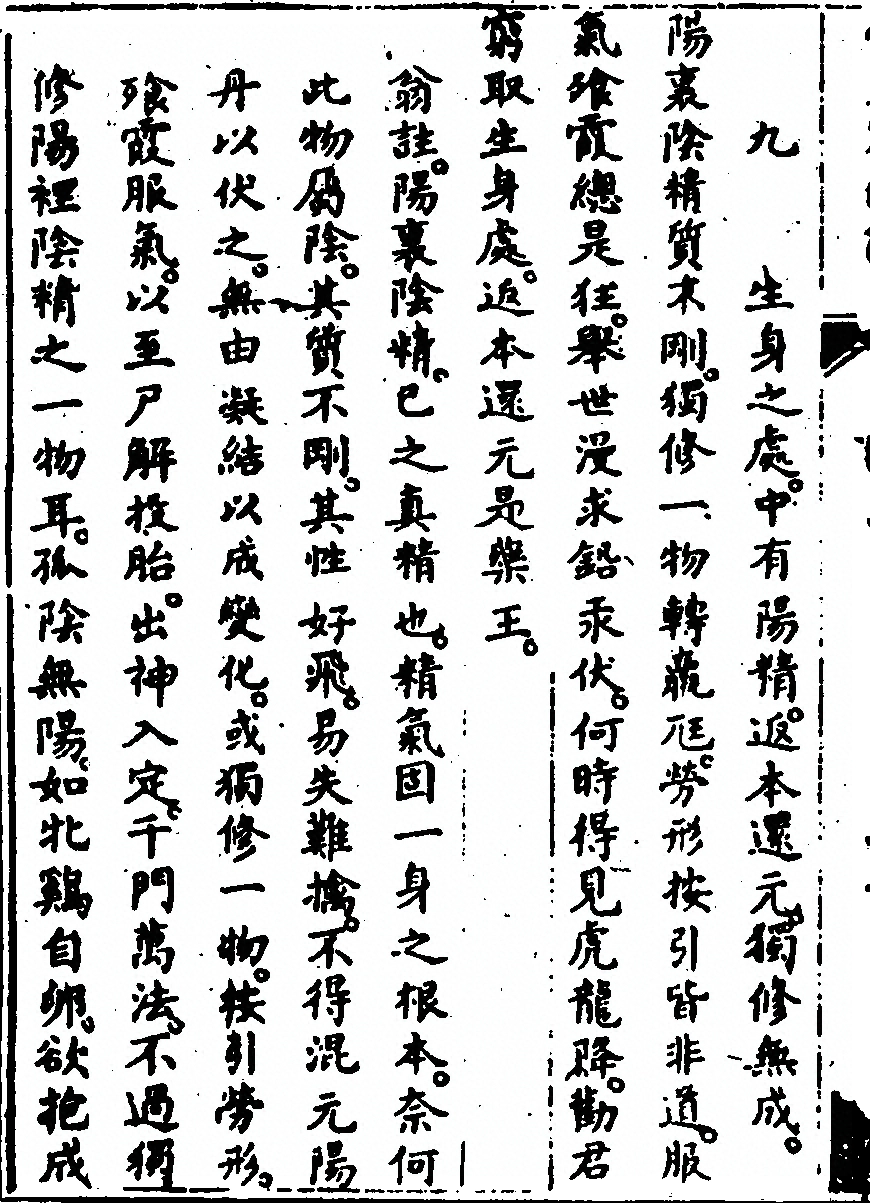 九　生身之處。中有陽精。返本還元。獨修無成。
陽裏陰精質不剛。獨修一物轉羸尫。勞形按引皆非道。服
氣飱霞總是狂。舉世漫求鉛汞伏。何時得見虎龍降。勸君
窮取生身處。返本還元是藥王。
翁註。陽裏陰精。己之真精也。精氣固一身之根本。奈何
此物屬陰。其質不剛。其性好飛。易失難擒。不得混元陽
丹以伏之。無由凝結以成變化。或獨修一物。按引勞形。
飱霞服氣。以至尸解投胎。出神入定。千門萬法。不過獨
修陽裡陰精之一物耳。孤陰無陽。如牝鷄自卵。欲抱成